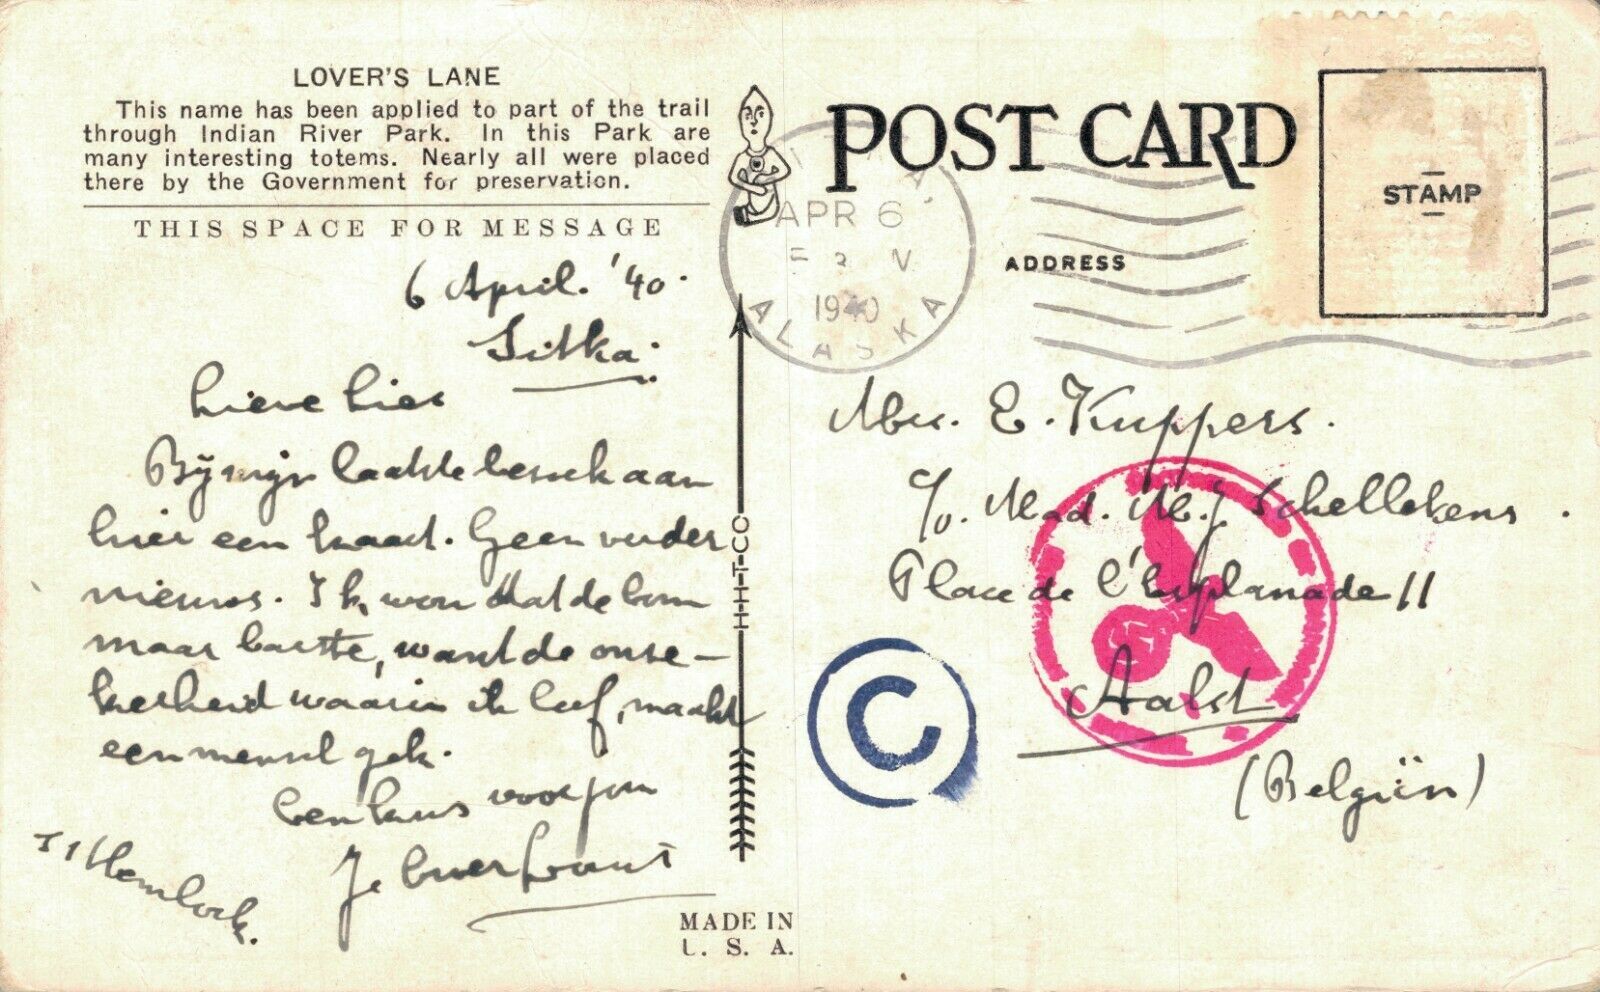 LOVER'S LANE
This name has been applied to part of the trail
through Indian River Park. In this Park are
many interesting totems. Nearly all were placed
there by the Government for preservation.
THIS SPACE FOR MESSAGE
6 April. '40.
Sitka.
Lieve Lies
Bij mijn laatste bezoek aan
hier een kaart. Geen verder
nieuws. Ik wou dat de bom
maar barstte, want de onze-
kerheid waarin ik leef, maakt
een mensch gek.
Een kus voor jou
Je
Hemlock.
H-H-T-CC
MADE IN
U. S. A.
POST CARD
STAMP
ADDRESS
APR 6
1940
ALASKA
Mrs. E. Kuppers.
c/o. Mad. M. J. Schellekens.
Place de l'Esplanade 11
Aalst
(Belgiën)
C